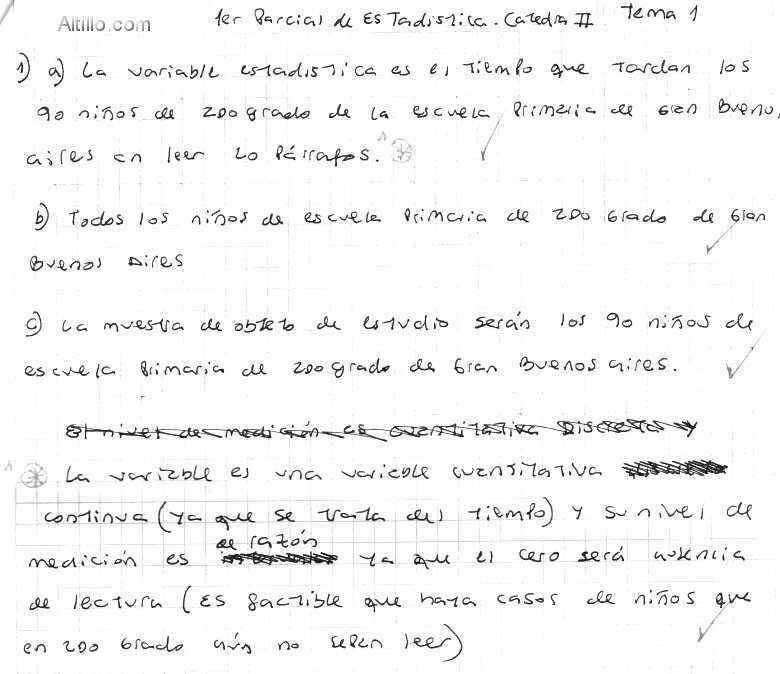 Altillo.com
1er Parcial de EsTadistica. Catedra II Tema 1
1) a) La variable estadistica es el Tiempo que Tardan los
90 niños de 2do grado de la escuela Primaria de Gran Bueno,
aires en leer 20 Párrafos.
b) Todos los niños de escuela Primaria de 2do Grado de Gran
Buenos Aires
c) La muestra de objeto de estudio serán los 90 niños de
escuela Primaria de 2do grado de Gran Buenos aires.
El nivel de medición es cuantitativa Discreta y
La variable es una variable cuantitativa
continua (ya que se trata del tiempo) y su nivel de
de razón
medición es ya que el cero será ausencia
de lectura (Es factible que haya casos de niños que
en 2do Grado aún no sepan leer)